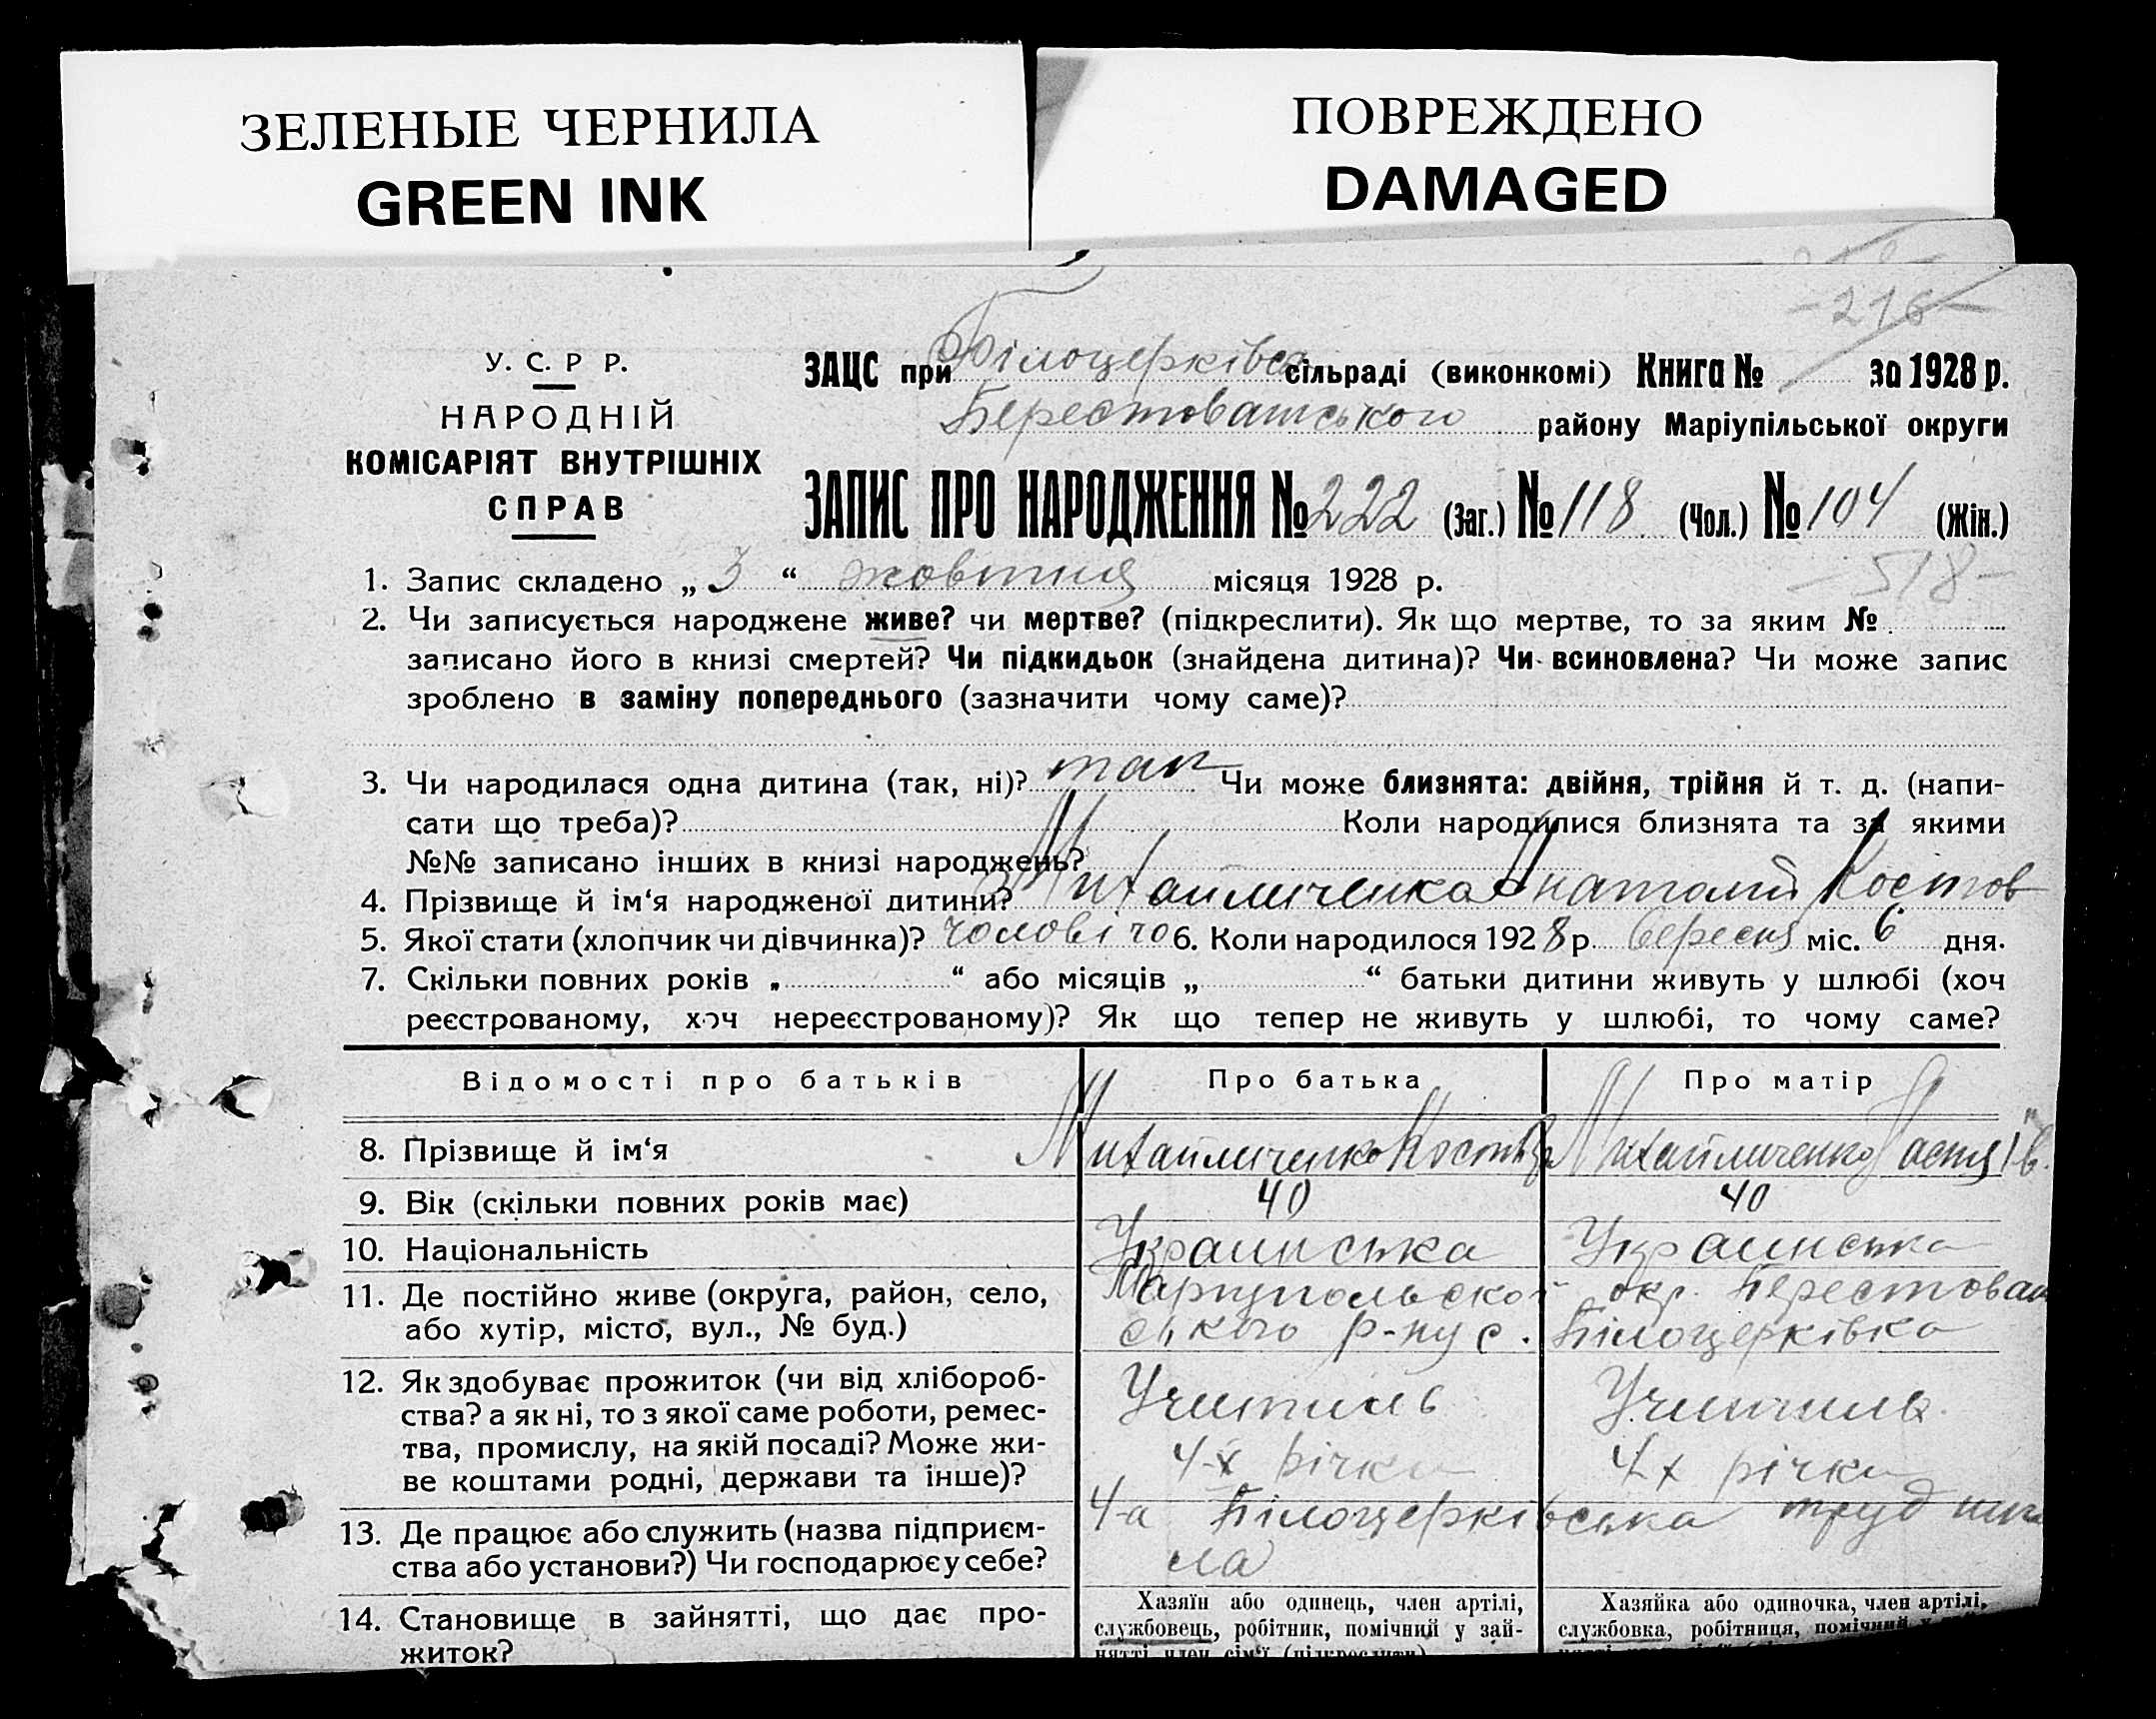 ЗЕЛЕНЫЕ ЧЕРНИЛА
GREEN INK
ПОВРЕЖДЕНО
DAMAGED
-216-
У. С. Р Р.
НАРОДНІЙ
КОМІСАРІЯТ ВНУТРІШНІХ
СПРАВ
ЗАЦС при Білоцерківс сільраді (виконкомі) Книга № за 1928 р.
Берестоваського району Маріупільської округи
ЗАПИС ПРО НАРОДЖЕННЯ № 222 (Заг.) № 118 (Чол.) № 104 (Жін.)
-518-
1. Запис складено „ 3 “ жовтня місяця 1928 р.
2. Чи записується народжене живе? чи мертве? (підкреслити). Як що мертве, то за яким №
записано його в книзі смертей? Чи підкидьок (знайдена дитина)? Чи всиновлена? Чи може запис
зроблено в заміну попереднього (зазначити чому саме)?
3. Чи народилася одна дитина (так, ні)? так Чи може близнята: двійня, трійня й т. д. (напи-
сати що треба)? Коли народилися близнята та за якими
№№ записано інших в книзі народжень?
4. Прізвище й ім‘я народженої дитини? Михайличенко Анатолий Костов
5. Якої стати (хлопчик чи дівчинка)? чоловічо 6. Коли народилося 1928 р. вересня міс. 6 дня.
7. Скільки повних років „ “ або місяців „ “ батьки дитини живуть у шлюбі (хоч
реєстрованому, хоч нереєстрованому)? Як що тепер не живуть у шлюбі, то чому саме?
Відомості про батьків Про батька Про матір
8. Прізвище й ім‘я Михайличенко Михайличенко Настя Ів.
9. Вік (скільки повних років має) 40 40
10. Національність Украинська Украинська
11. Де постійно живе (округа, район, село, Мариупольской окр. Берестоваш
або хутір, місто, вул., № буд.) ського р-ну с. Білоцерківка
12. Як здобуває прожиток (чи від хлібороб- Учитиль Учитиль
ства? а як ні, то з якої саме роботи, ремес-
тва, промислу, на якій посаді? Може жи- 4-х річки 4х річки
ве коштами родні, держави та інше)?
13. Де працює або служить (назва підприєм- 4-а Білоцерківська труд шко
ства або установи?) Чи господарює у себе? ла
14. Становище в зайнятті, що дає про-
житок?
Хазяїн або одинець, член артілі,
службовець, робітник, помічний у зай-
нятті член сім‘ї (підкреслити)
Хазяйка або одиночка, член артілі,
службовка, робітниця, помічний